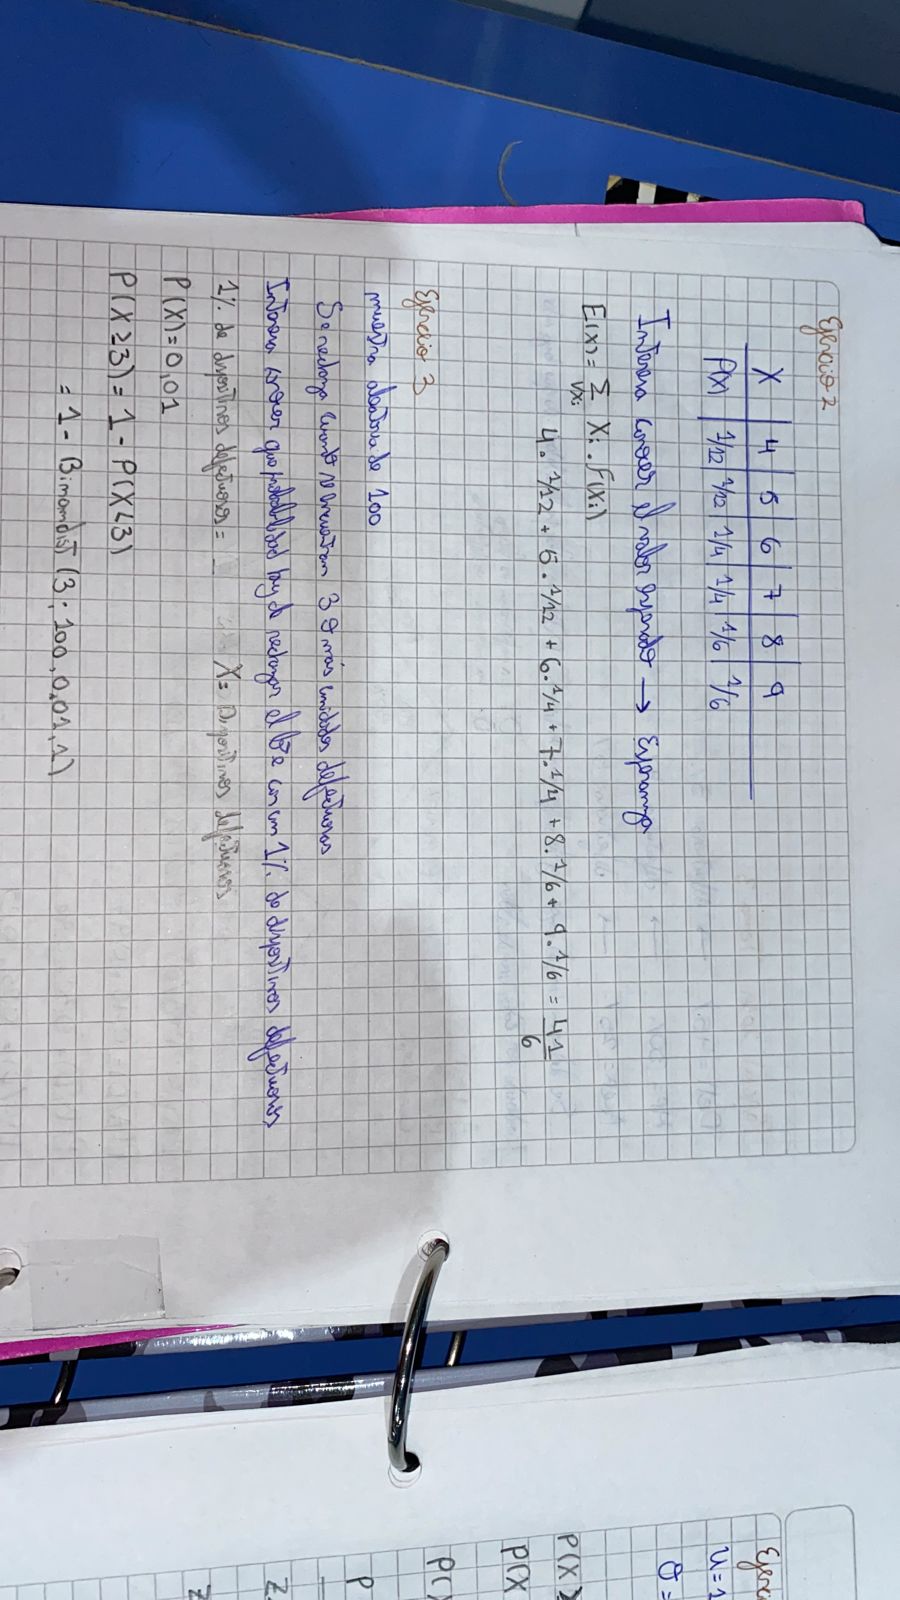 Ejercicio 2
X | 4 | 5 | 6 | 7 | 8 | 9
P(X) | 1/12 | 1/12 | 1/4 | 1/4 | 1/6 | 1/6
Interesa conocer el valor esperado → Esperanza
E(X) = Σ Xi . f(Xi)
∀xi
4. 1/12 + 5. 1/12 + 6. 1/4 + 7. 1/4 + 8. 1/6 + 9. 1/6 = 41/6
Ejercicio 3
muestra aleatoria de 100
Se rechaza cuando se encuentran 3 o más unidades defectuosas
Interesa conocer que probabilidad hay de rechazar el lote con un 1% de dispositivos defectuosos
1% de dispositivos defectuosos = X= Dispositivos defectuosos
P(X)=0,01
P(X≥3) = 1 - P(X<3)
= 1 - Binomdist (3; 100, 0,01, 1)
Ejerci
u=1
σ=
P(X>
P(X
P(X
P
Z
Z